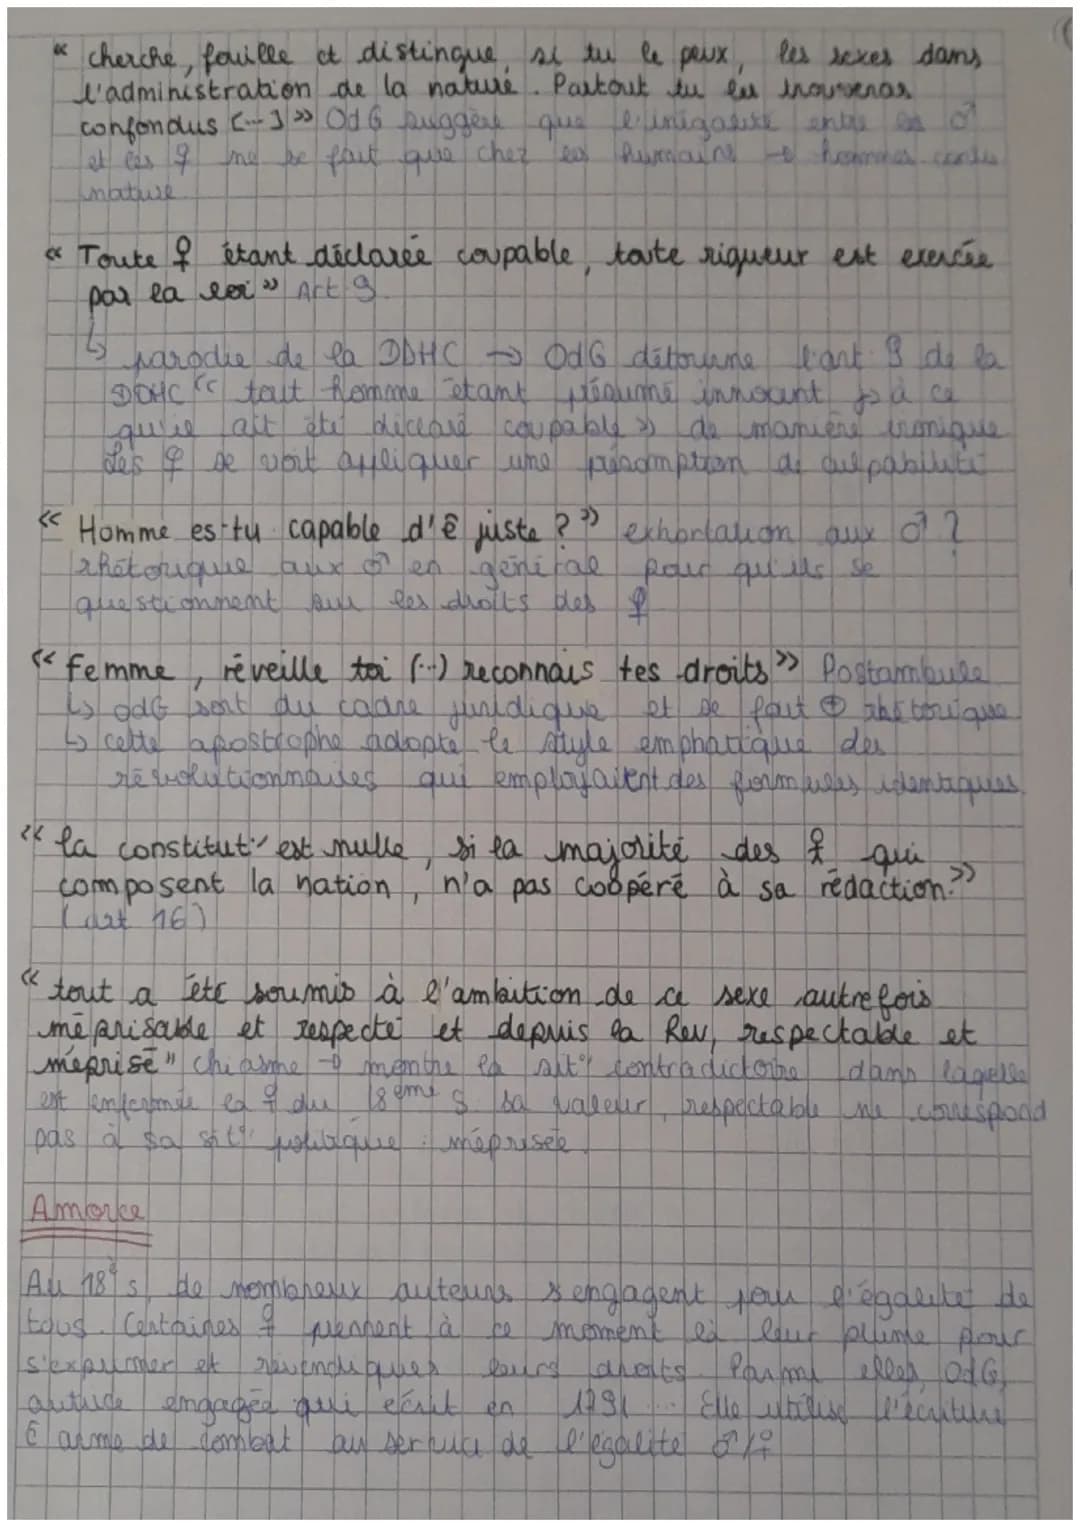 « cherche, fouille et distingue, si tu le peux, les sexes dans
l'administration de la nature. Partout tu les trouveras
confondus [...] » OdG suggère que l'inégalité entre les ♂
et les ♀ ne se fait que chez les humains → hommes contre
nature.
« Toute ♀ étant déclarée coupable, toute rigueur est exercée
par la loi » Art 9.
↳ parodie de la DDHC → OdG détourne l'art. 9 de la
DDHC « tout homme étant présumé innocent jsq à ce
qu'il ait été déclaré coupable » de manière ironique
Les ♀ se voit appliquer une présomption de culpabilité
« Homme es-tu capable d'ê juste ? » exhortation aux ♂ ?
rhétorique aux ♂ en général pour qu'ils se
questionnent sur les droits des ♀
« Femme, réveille toi (...) reconnais tes droits » Postambule
↳ OdG sort du cadre juridique et se fait ⊕ rhétorique
↳ cette apostrophe adopte le style emphatique des
révolutionnaires qui employaient des formules identiques.
« la constitut° est nulle, si la majorité des ♀ qui
composent la nation, n'a pas coopéré à sa rédaction. »
(art 16)
« tout a été soumis à l'ambition de ce sexe autrefois
méprisable et respecté et depuis la Rev, respectable et
méprisé" chiasme → montre la sit° contradictoire dans laquelle
est enfermée la ♀ du 18ème s. sa valeur, respectable ne correspond
pas à sa sit° politique : méprisée.
Amorce
Au 18e s, de nombreux auteurs s'engagent pour l'égalité de
tous. Certaines ♀ prennent à ce moment là leur plume pour
s'exprimer et revendiquer leurs droits. Parmi elles, OdG,
autrice engagée qui écrit en 1791 ... Elle utilise l'écriture
ê arme de combat au service de l'égalité ♂/♀